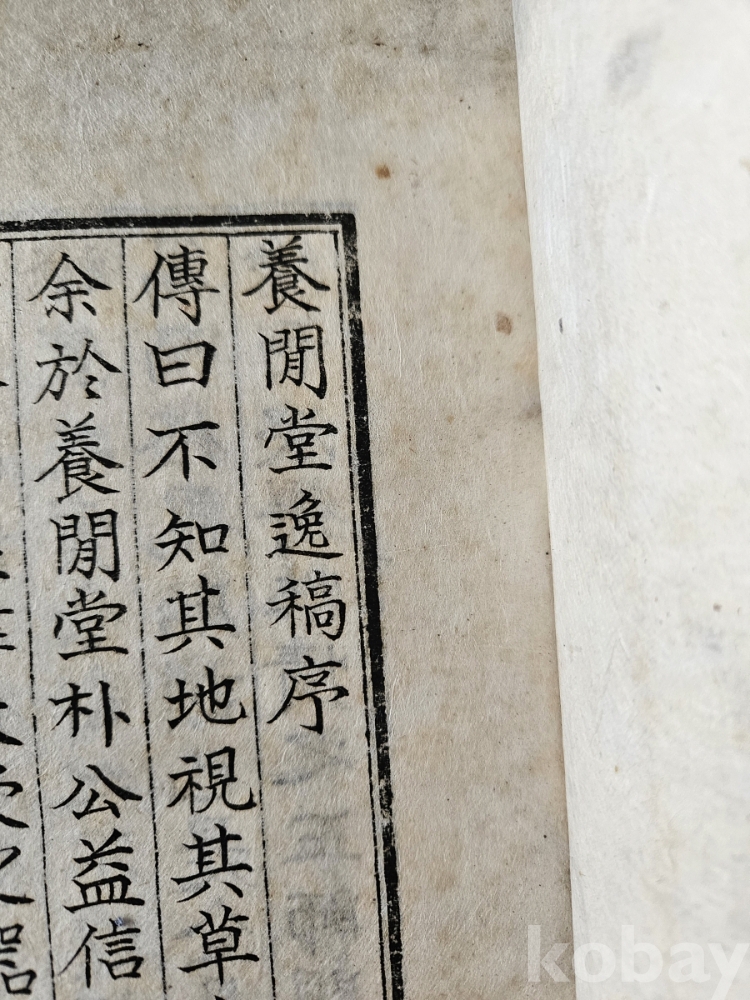 養閒堂逸稿序
傳曰不知其地視其草
余於養閒堂朴公益信
kobay